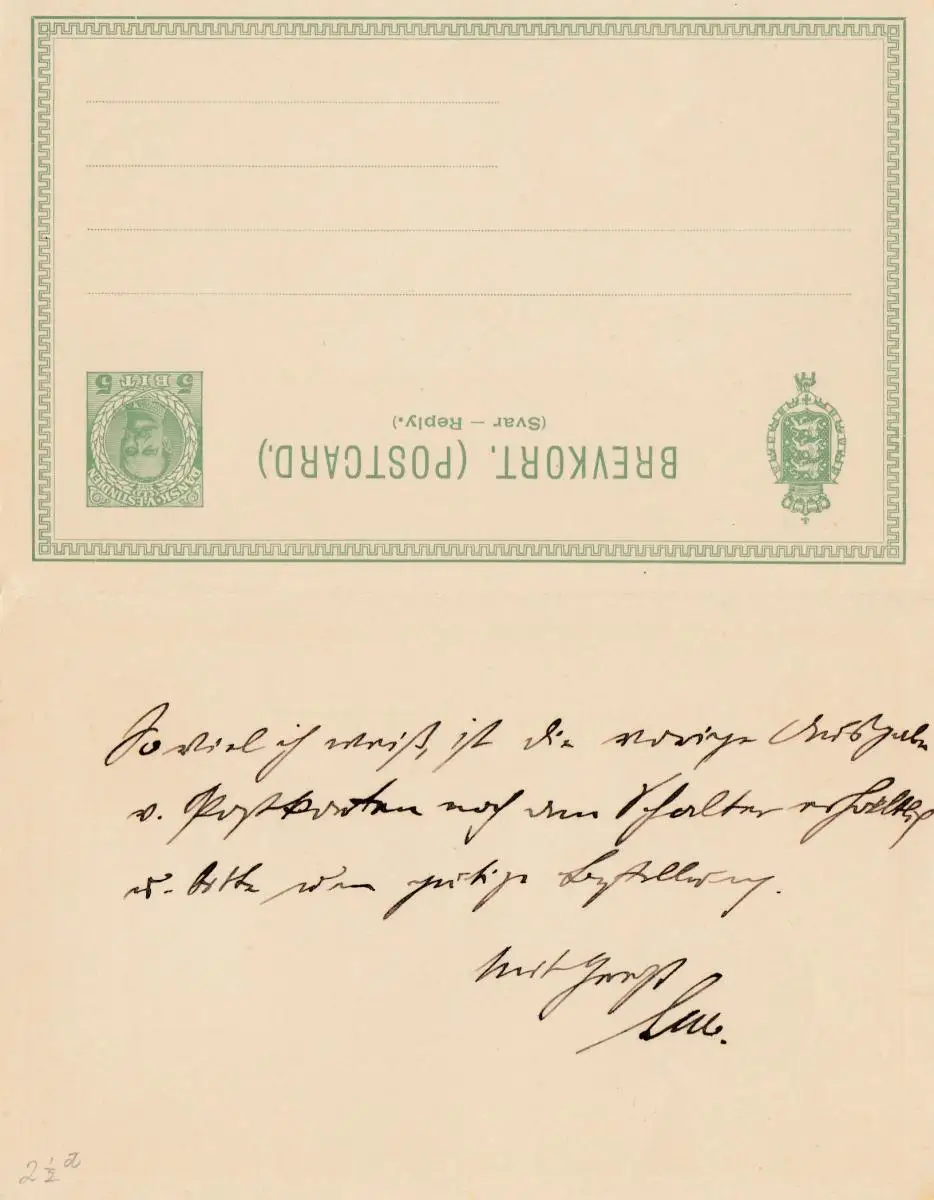 BREVKORT. (POSTCARD.)
(Svar — Reply.)
5 BIT 5
DANSK-VESTINDIEN
Soviel ich weiß, ist die vorige Ausgabe
v. Postkarten noch am Schalter erhältlich
u. bitte um gütige Bestellung.
Mit Gruß
2½ d